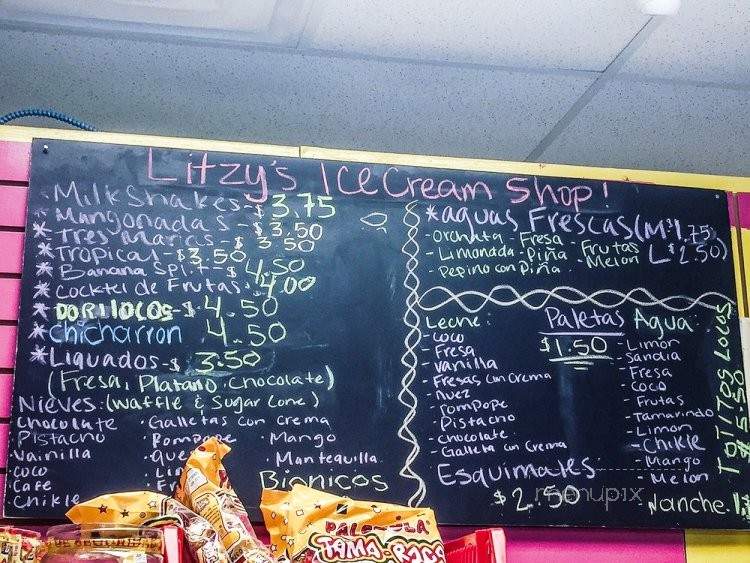 Litzy's Ice Cream Shop!
Milkshakes - $3.75
Mangonadas - $3.50
* Tres Marias - $3.50
* Tropical - $3.50
* Banana Split - $4.50
* Cocktel de Frutas 4.00
* DORILOCOS - $4.50
* Chicharron 4.50
* Liquados - $3.50
(Fresa, Platano, Chocolate)
Nieves: (Waffle & Sugar Cone)
Chocolate
Pistacho
Vainilla
Coco
Cafe
Chikle
· Galletas con Crema
Rompope
· Mango
· Mantequilla
Bionicos
* aguas Frescas (M $1.75
L $2.50)
- Orchata - Fresa
- Limonada - Piña - Frutas
- Pepino con Piña - Melon
Paletas
$1.50
Leche:
- Coco
- Fresa
- Vanilla
- Fresas con Crema
- Nuez
- rompope
- Pistacho
- Chocolate
- Galleta con Crema
Agua:
- Limón
- Sandia
- Fresa
- Coco
- Frutas
- Tamarindo
- Limon
- Chikle
- Mango
- Melon
- Nanche
Esquimales
$2.50
TOTITOS LOCOS
$5.50
menupix
TAMA-ROCA